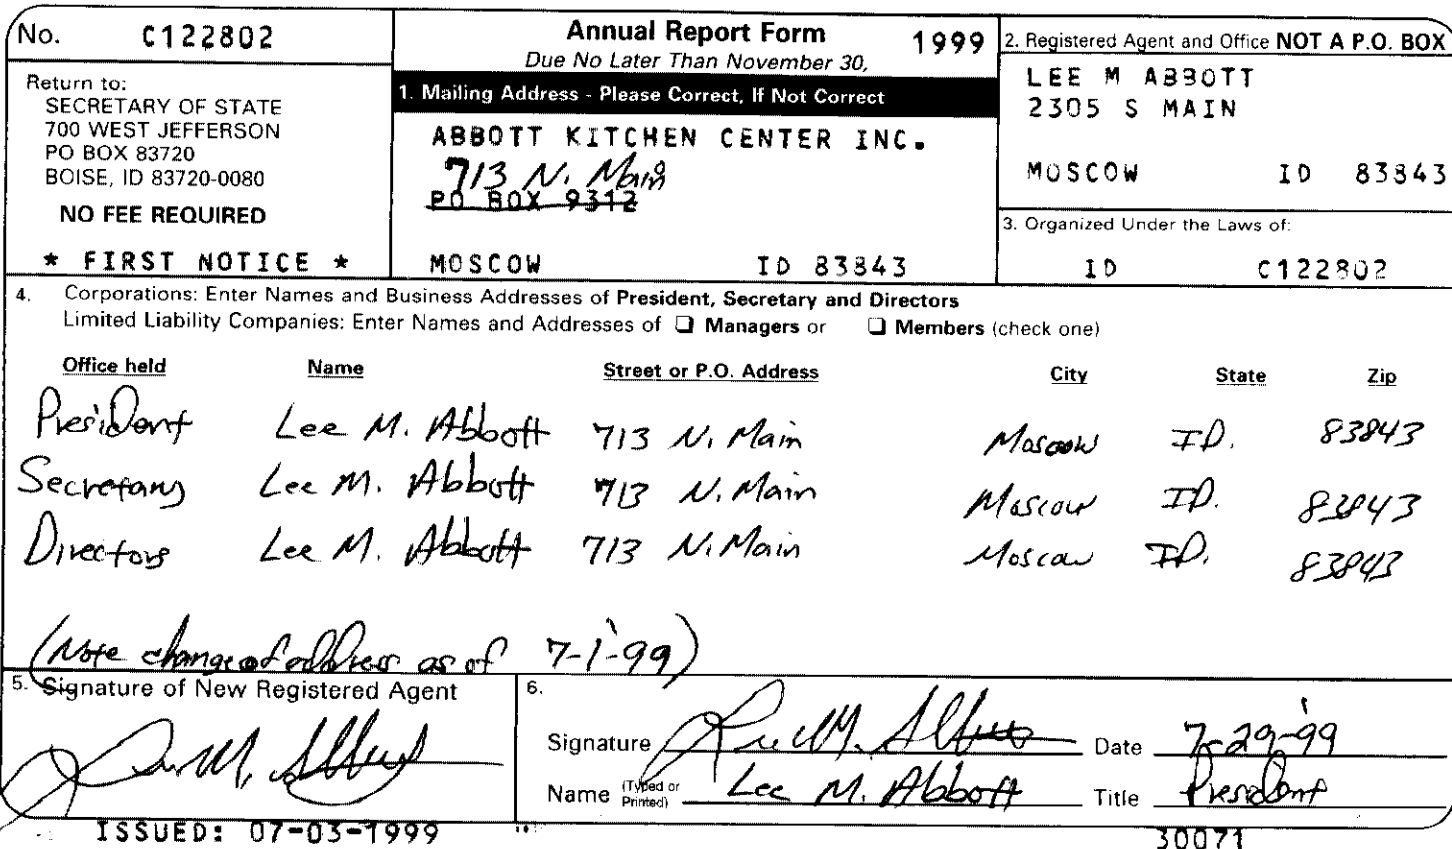 No. C122802
Return to:
SECRETARY OF STATE
700 WEST JEFFERSON
PO BOX 83720
BOISE, ID 83720-0080
NO FEE REQUIRED
* FIRST NOTICE *
Annual Report Form 1999
Due No Later Than November 30,
1. Mailing Address - Please Correct, If Not Correct
ABBOTT KITCHEN CENTER INC.
713 N. Main
PO BOX 9312
MOSCOW ID 83843
2. Registered Agent and Office NOT A P.O. BOX
LEE M ABBOTT
2305 S MAIN
MOSCOW ID 83843
3. Organized Under the Laws of:
ID C122802
4. Corporations: Enter Names and Business Addresses of President, Secretary and Directors
Limited Liability Companies: Enter Names and Addresses of ❑ Managers or ❑ Members (check one)
Office held Name Street or P.O. Address City State Zip
President Lee M. Abbott 713 N. Main Moscow ID. 83843
Secretary Lee M. Abbott 713 N. Main Moscow ID. 83843
Directors Lee M. Abbott 713 N. Main Moscow ID. 83843
(Note change of address as of 7-1-99)
5. Signature of New Registered Agent
Lee M. Abbott
6.
Signature Lee M. Abbott Date 7-29-99
Name (Typed or Printed) Lee M. Abbott Title President
ISSUED: 07-03-1999
30071